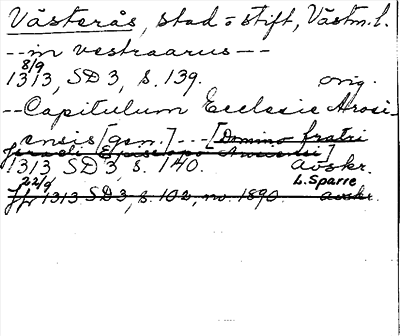 Västerås, stad o stift, Västm. l.
-- in vestraarus --
8/9
1313, SD 3, s. 139. orig.
-- Capitulum Ecclesie Arosi-
ensis [gen.] --- [Domino fratri
Israeli Episcopo Arosiensi]
1313 SD 3, s. 140. avskr.
22/9 L. Sparre
Jfr 1313 SD 3, s. 102, nr. 1890. avskr.